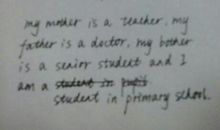 my mother is a teacher, my
father is a doctor, my bother
is a senior student and I
am a student in pupil
student in primary school.